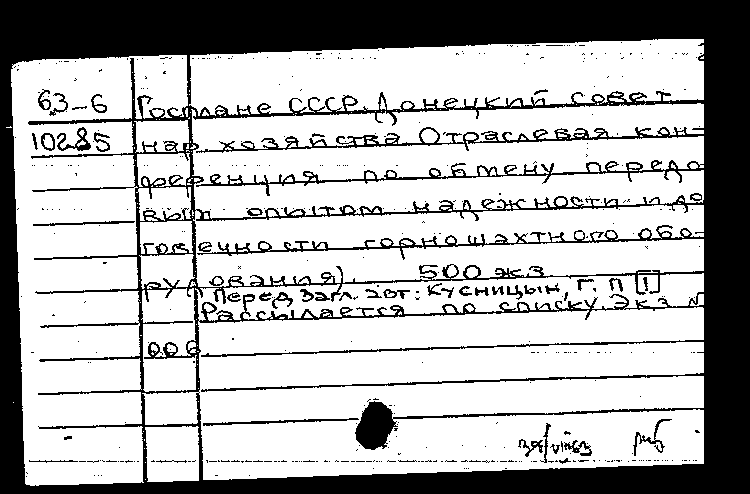 63-6 Госплане СССР. Донецкий совет
10285 нар. хозяйства Отраслевая кон-
ференция по обмену передо
вым опытом надежности и до
говечности горношахтного обо-
рудования). 500 экз.
Перед загл. авт: Кусницын, Г. П 1
Рассылается по списку. Экз №
006.